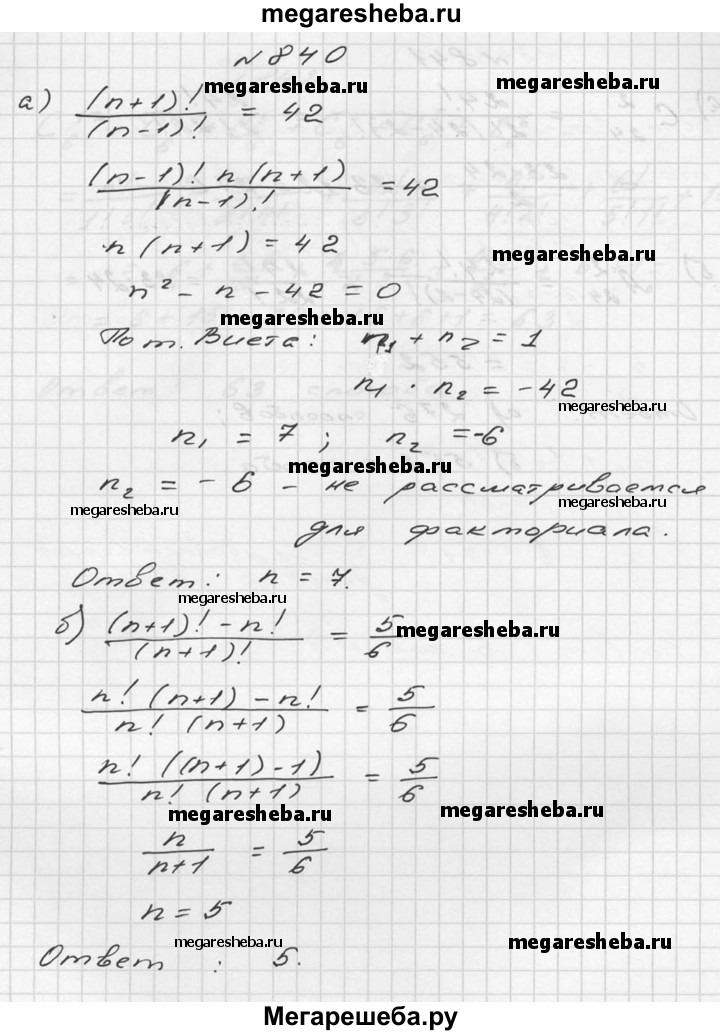 megaresheba.ru
№840
megaresheba.ru megaresheba.ru
а) (n+1)! / (n-1)! = 42
(n-1)! n (n+1) / (n-1)! = 42
n (n+1) = 42
megaresheba.ru
n² - n - 42 = 0
megaresheba.ru
По т. Виета: n₁ + n₂ = 1
n₁ · n₂ = -42
megaresheba.ru
n₁ = 7; n₂ = -6
megaresheba.ru
n₂ = - 6 - не рассматривается
megaresheba.ru megaresheba.ru
для факториала.
Ответ: n = 7.
megaresheba.ru
б) (n+1)! - n! / (n+1)! = 5/6
megaresheba.ru
n! (n+1) - n! / n! (n+1) = 5/6
n! ((n+1) - 1) / n! (n+1) = 5/6
megaresheba.ru megaresheba.ru
n / n+1 = 5/6
n = 5
megaresheba.ru megaresheba.ru
Ответ : 5.
Мегарешеба.ру